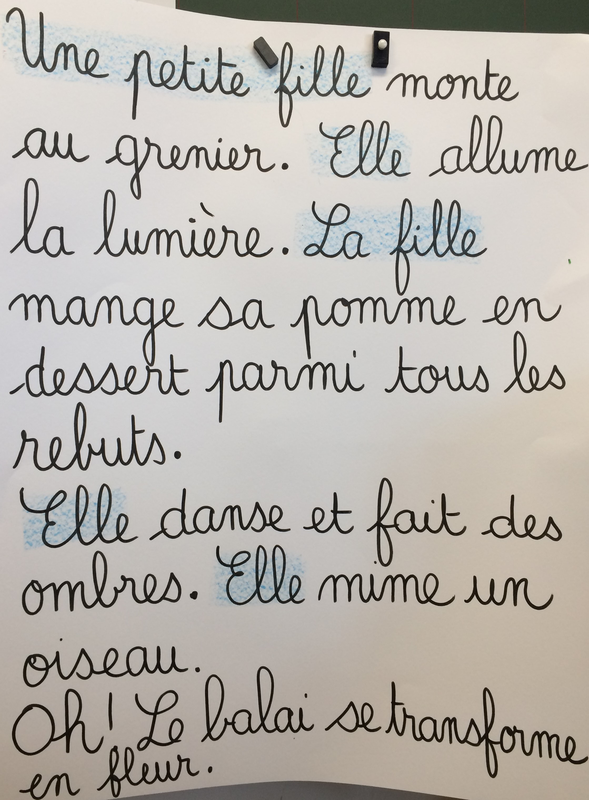 Une petite fille monte
au grenier. Elle allume
la lumière. La fille
mange sa pomme en
dessert parmi tous les
rebuts.
Elle danse et fait des
ombres. Elle mime un
oiseau.
Oh! Le balai se transforme
en fleur.